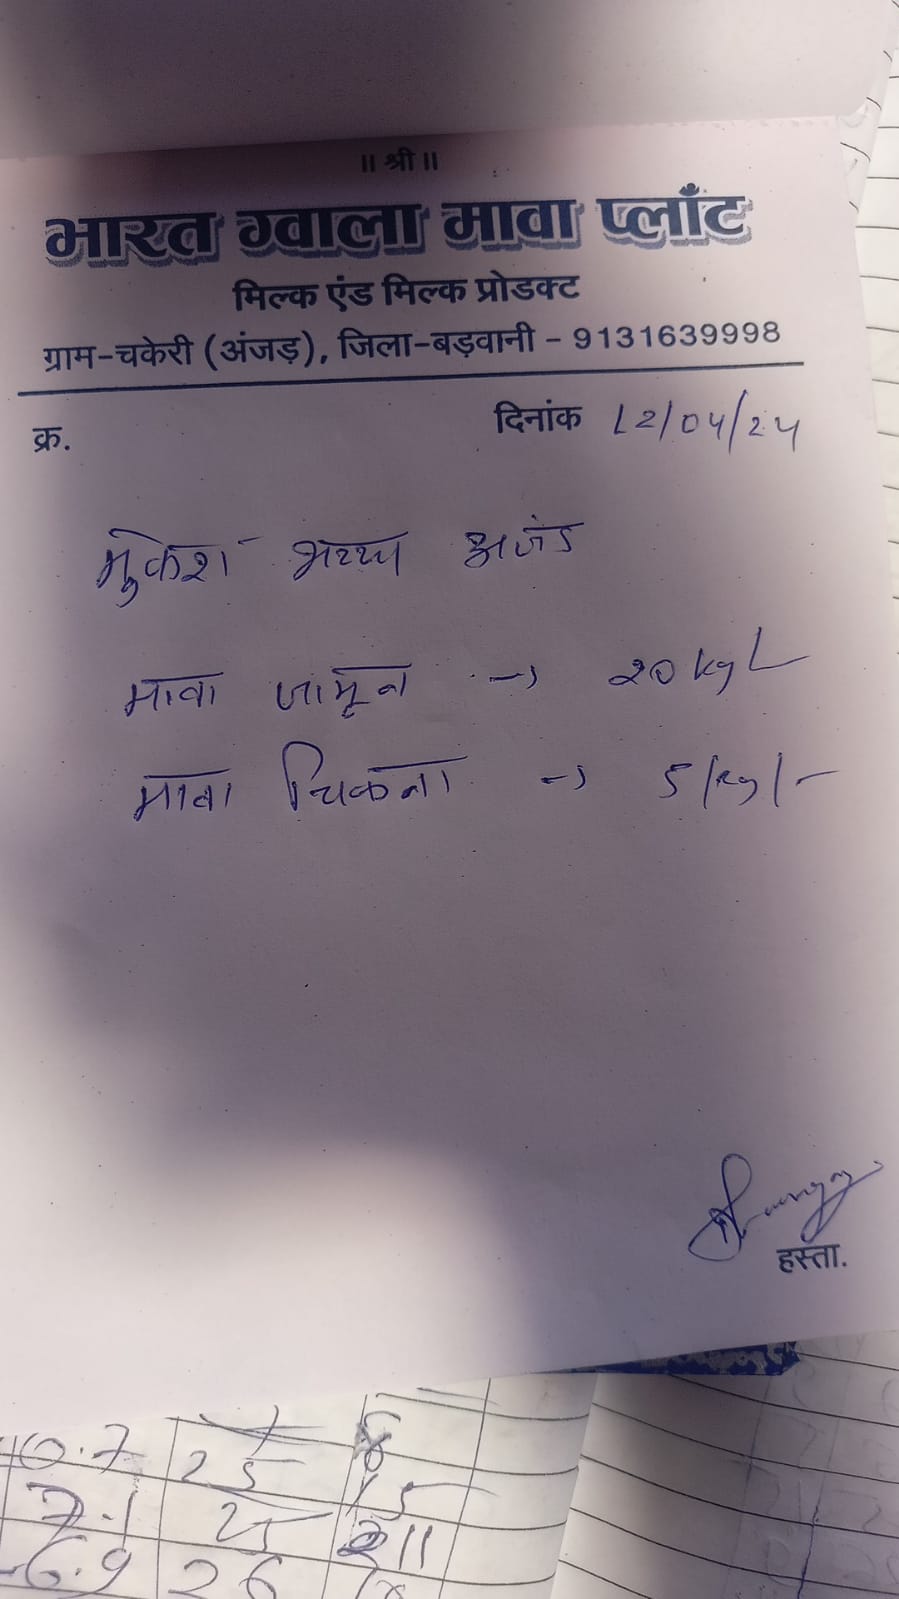 ॥ श्री ॥
भारत ग्वाला मावा प्लाँट
मिल्क एंड मिल्क प्रोडक्ट
ग्राम-चकेरी (अंजड़), जिला-बड़वानी - 9131639998
क्र.
दिनांक 12/04/24
मुकेश भय्या अजंड
मावा जामून → 20 kg/-
मावा चिकना → 5 kg/-
हस्ता.
10.7 25
7.1 25 11
6.9 26